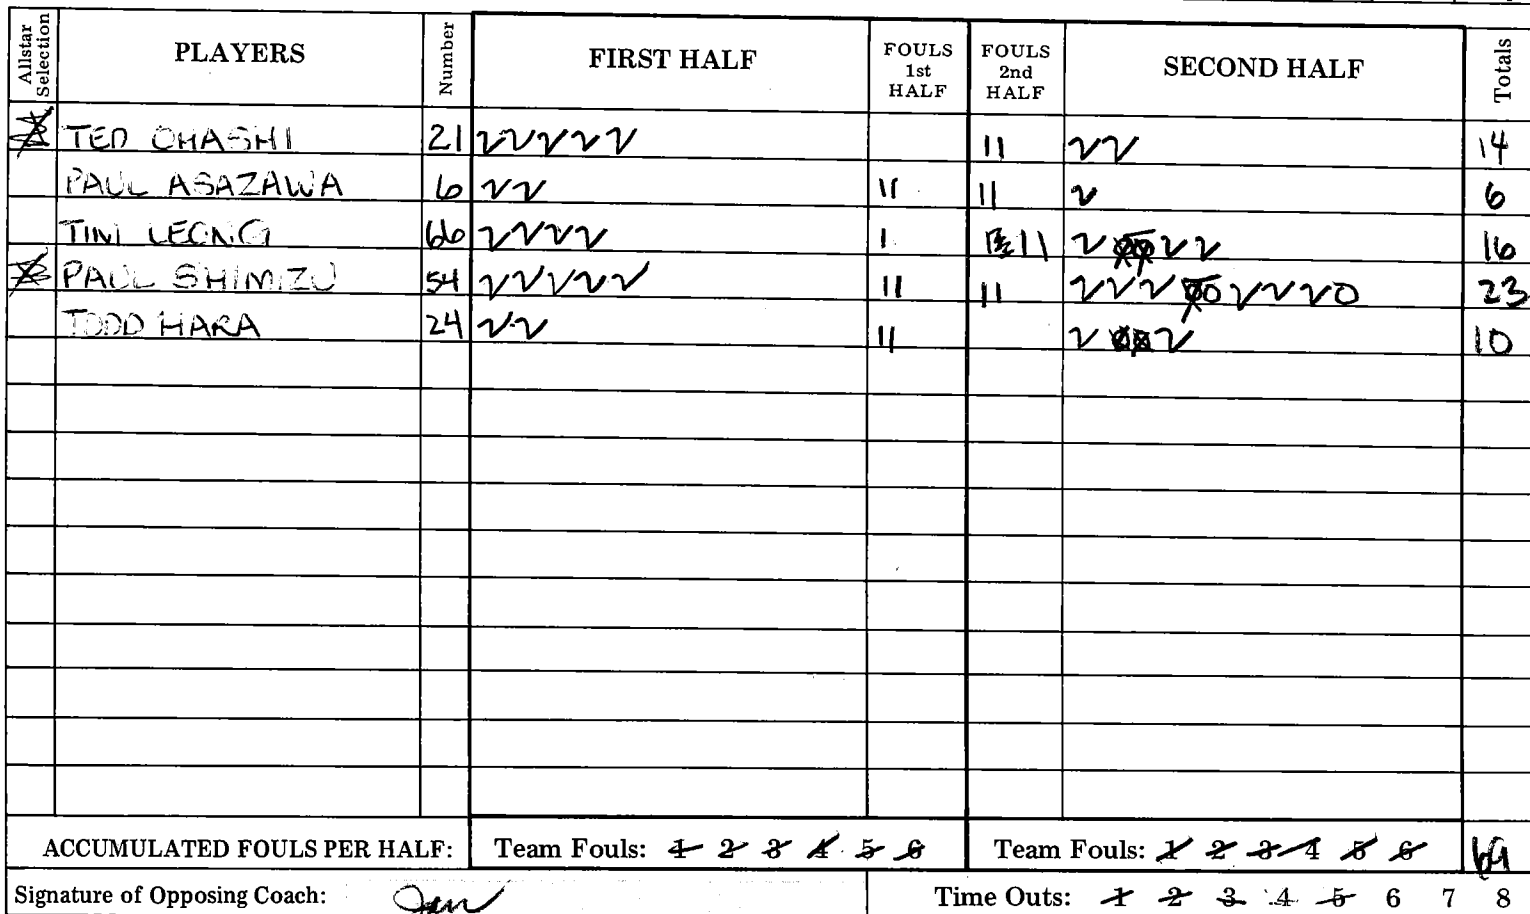 Allstar Selection PLAYERS Number FIRST HALF FOULS 1st HALF FOULS 2nd HALF SECOND HALF Totals
TED OHASHI 21 VVVVV 11 VV 14
PAUL ASAZAWA 6 VV 11 11 V 6
TIM LEONG 66 VVVV 1 11 V VV 16
PAUL SHIMIZU 54 VVVVV 11 11 VVV 0VVVVO 23
TODD HARA 24 VV 11 V V 10
ACCUMULATED FOULS PER HALF: Team Fouls: 1 2 3 4 5 6 Team Fouls: 1 2 3 4 5 6 69
Signature of Opposing Coach: Time Outs: 1 2 3 4 5 6 7 8